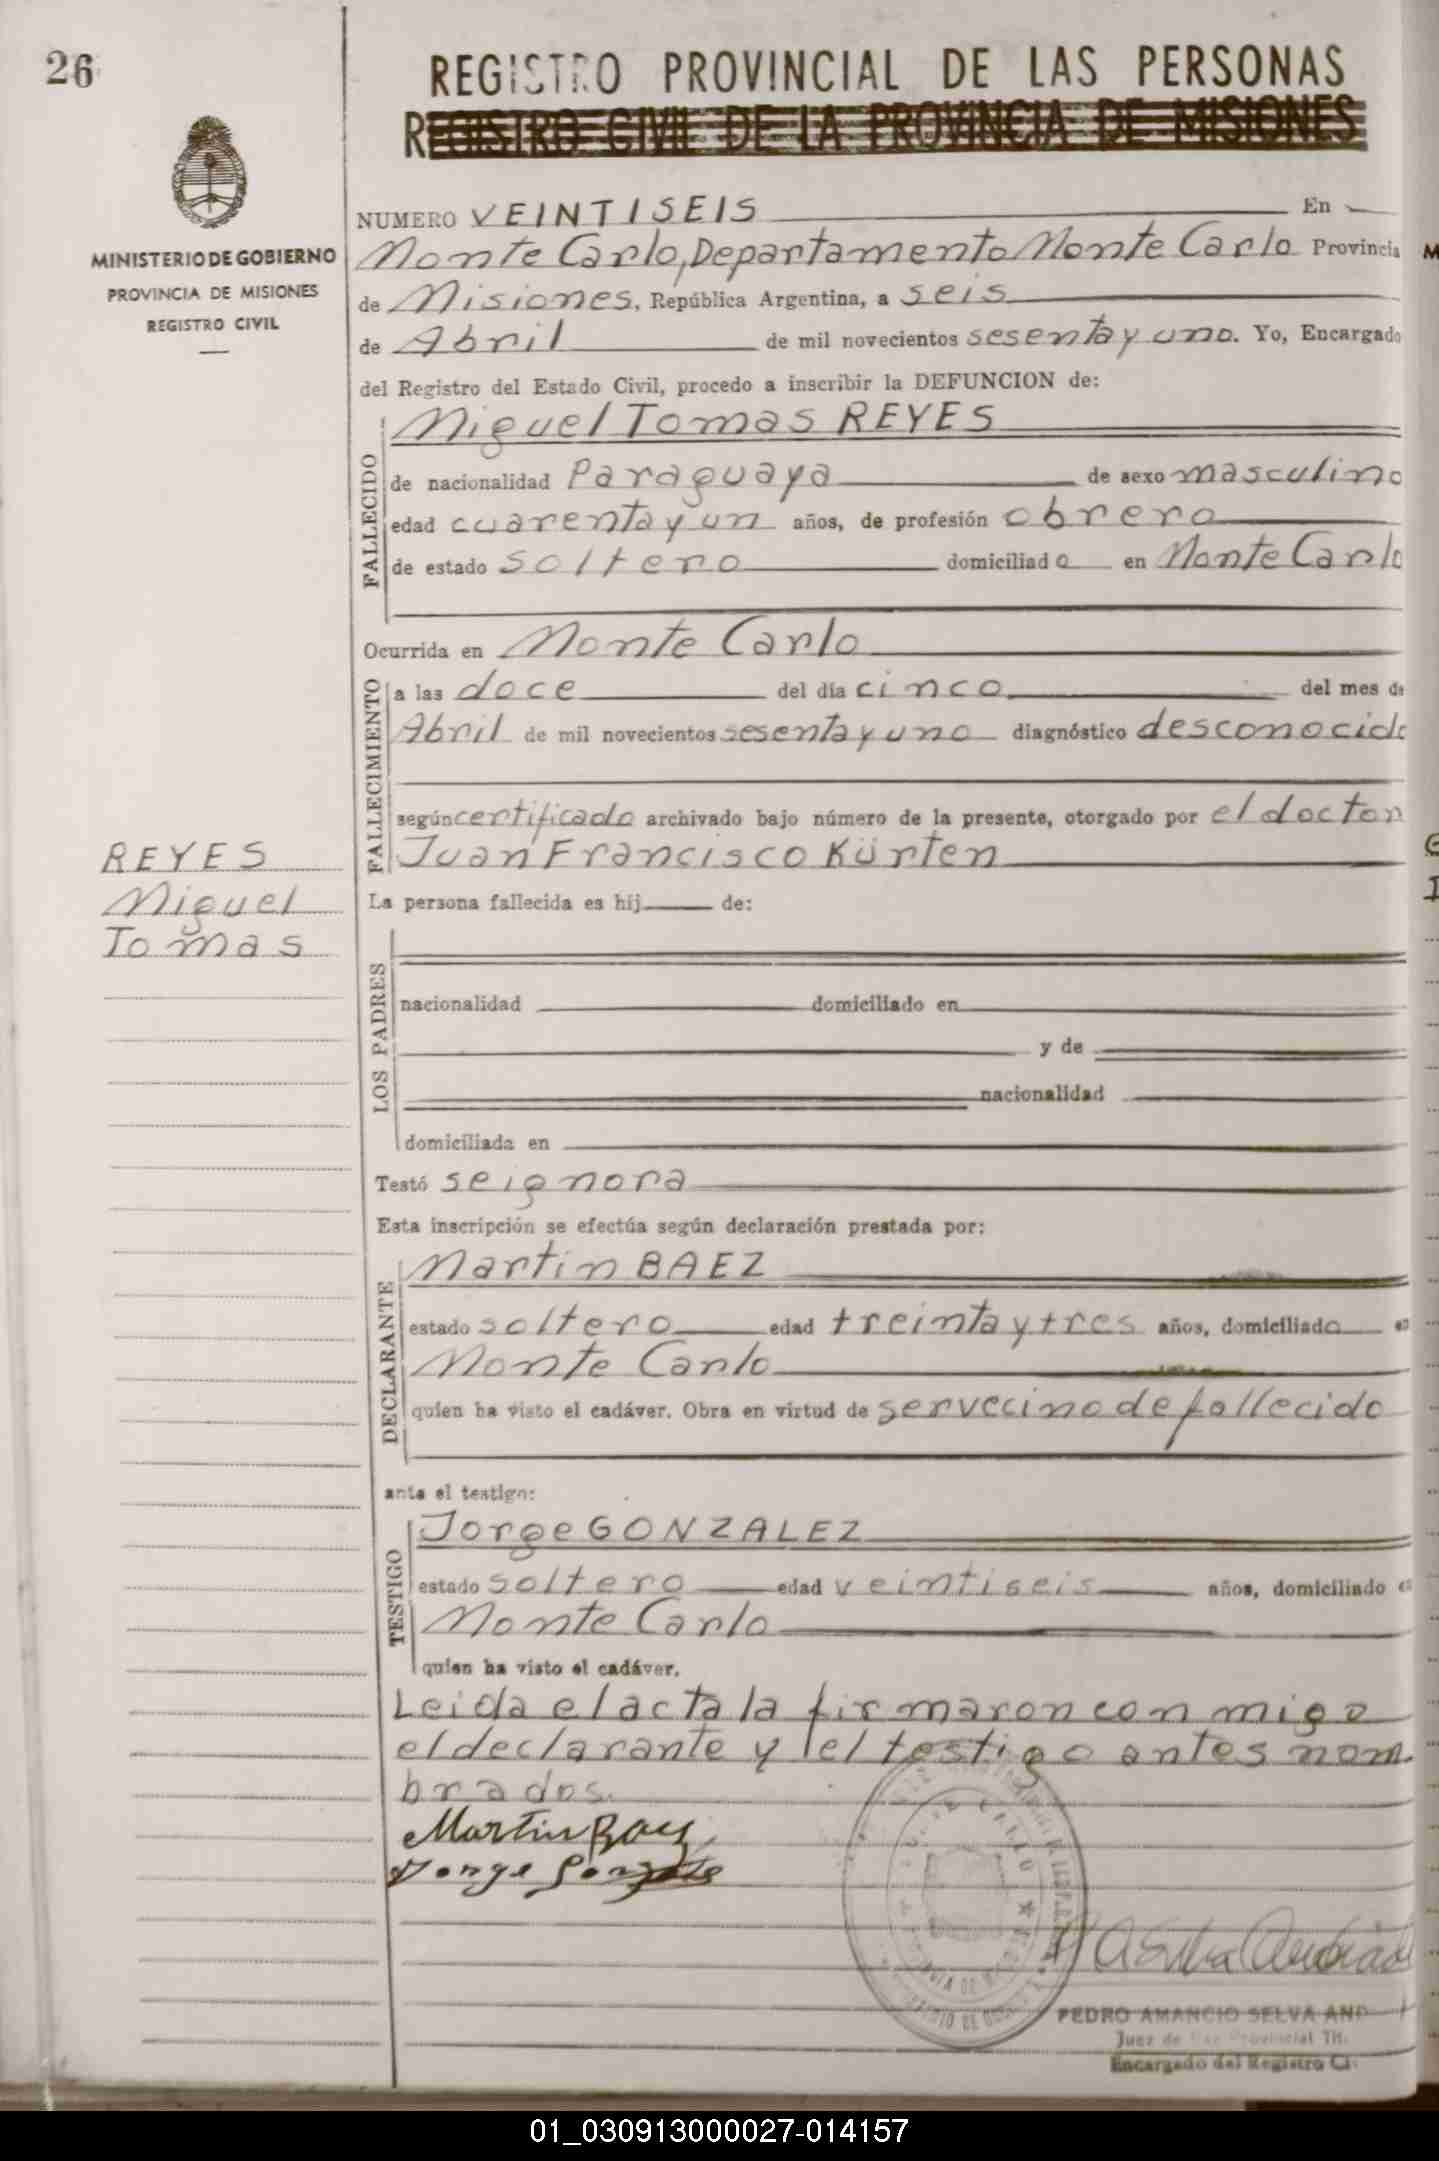 26
REGISTRO PROVINCIAL DE LAS PERSONAS
REGISTRO CIVIL DE LA PROVINCIA DE MISIONES
MINISTERIO DE GOBIERNO
PROVINCIA DE MISIONES
REGISTRO CIVIL
NUMERO VEINTISEIS En
Monte Carlo, Departamento Monte Carlo Provincia
de Misiones, República Argentina, a seis
de Abril de mil novecientos sesenta y uno. Yo, Encargado
del Registro del Estado Civil, procedo a inscribir la DEFUNCION de:
FALLECIDO
Miguel Tomas REYES
de nacionalidad Paraguaya de sexo masculino
edad cuarenta y un años, de profesión obrero
de estado soltero domiciliado en Monte Carlo
Ocurrida en Monte Carlo
FALLECIMIENTO
a las doce del día cinco del mes de
Abril de mil novecientos sesenta y uno diagnóstico desconocido
según certificado archivado bajo número de la presente, otorgado por el doctor
Juan Francisco Kürten
REYES
Miguel
Tomas
La persona fallecida es hij de:
LOS PADRES
nacionalidad domiciliado en
y de
nacionalidad
domiciliada en
Testó se ignora
Esta inscripción se efectúa según declaración prestada por:
DECLARANTE
Martin BAEZ
estado soltero edad treinta y tres años, domiciliado e
Monte Carlo
quien ha visto el cadáver. Obra en virtud de ser vecino de fallecido
ante el testigo:
TESTIGO
Jorge GONZALEZ
estado soltero edad veintiseis años, domiciliado e
Monte Carlo
quien ha visto el cadáver.
Leida el acta la firmaron con migo
el declarante y el testigo antes nom
brados.
Martin Baez
Jorge Gonzale
PEDRO AMANCIO SELVA AND
Juez de Paz Provincial Tit.
Encargado del Registro Ci
01_030913000027-014157